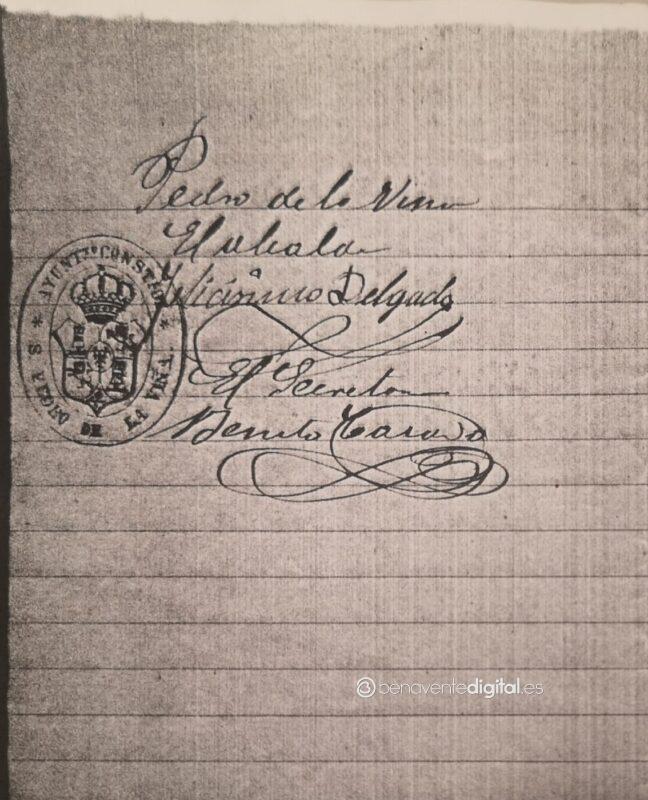 Pedro de la Viña
El alcalde
Felicísimo Delgado
El Secretario
Benito Casado
* AYUNTº CONSTAL * S PEDRO DE LA VIÑA.
benaventedigital.es